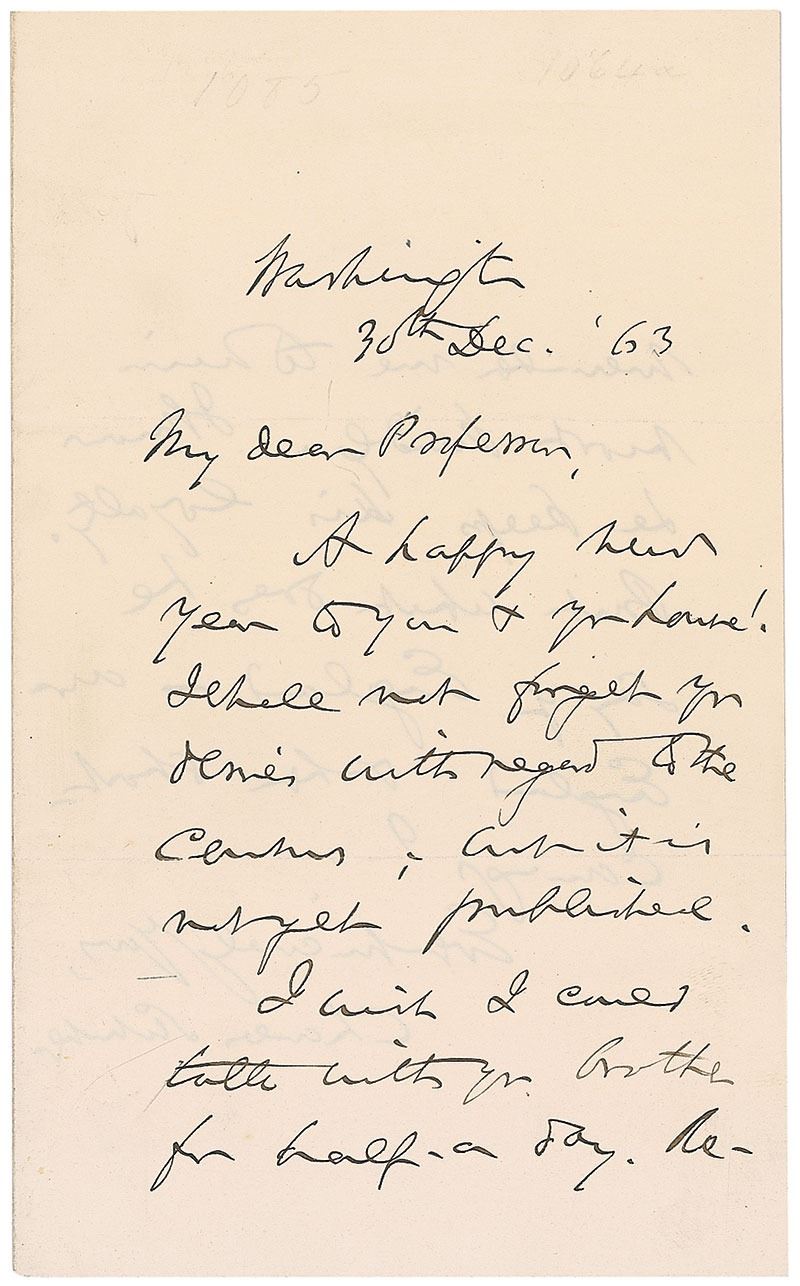 1085
Washington
30th Dec. '63
My dear Professor,
A happy new
year to you & yr house!
I shall not forget yr
desires with regard to the
Census; but it is
not yet published.
I wish I could
talk with yr. brother
for half-a day. Re-